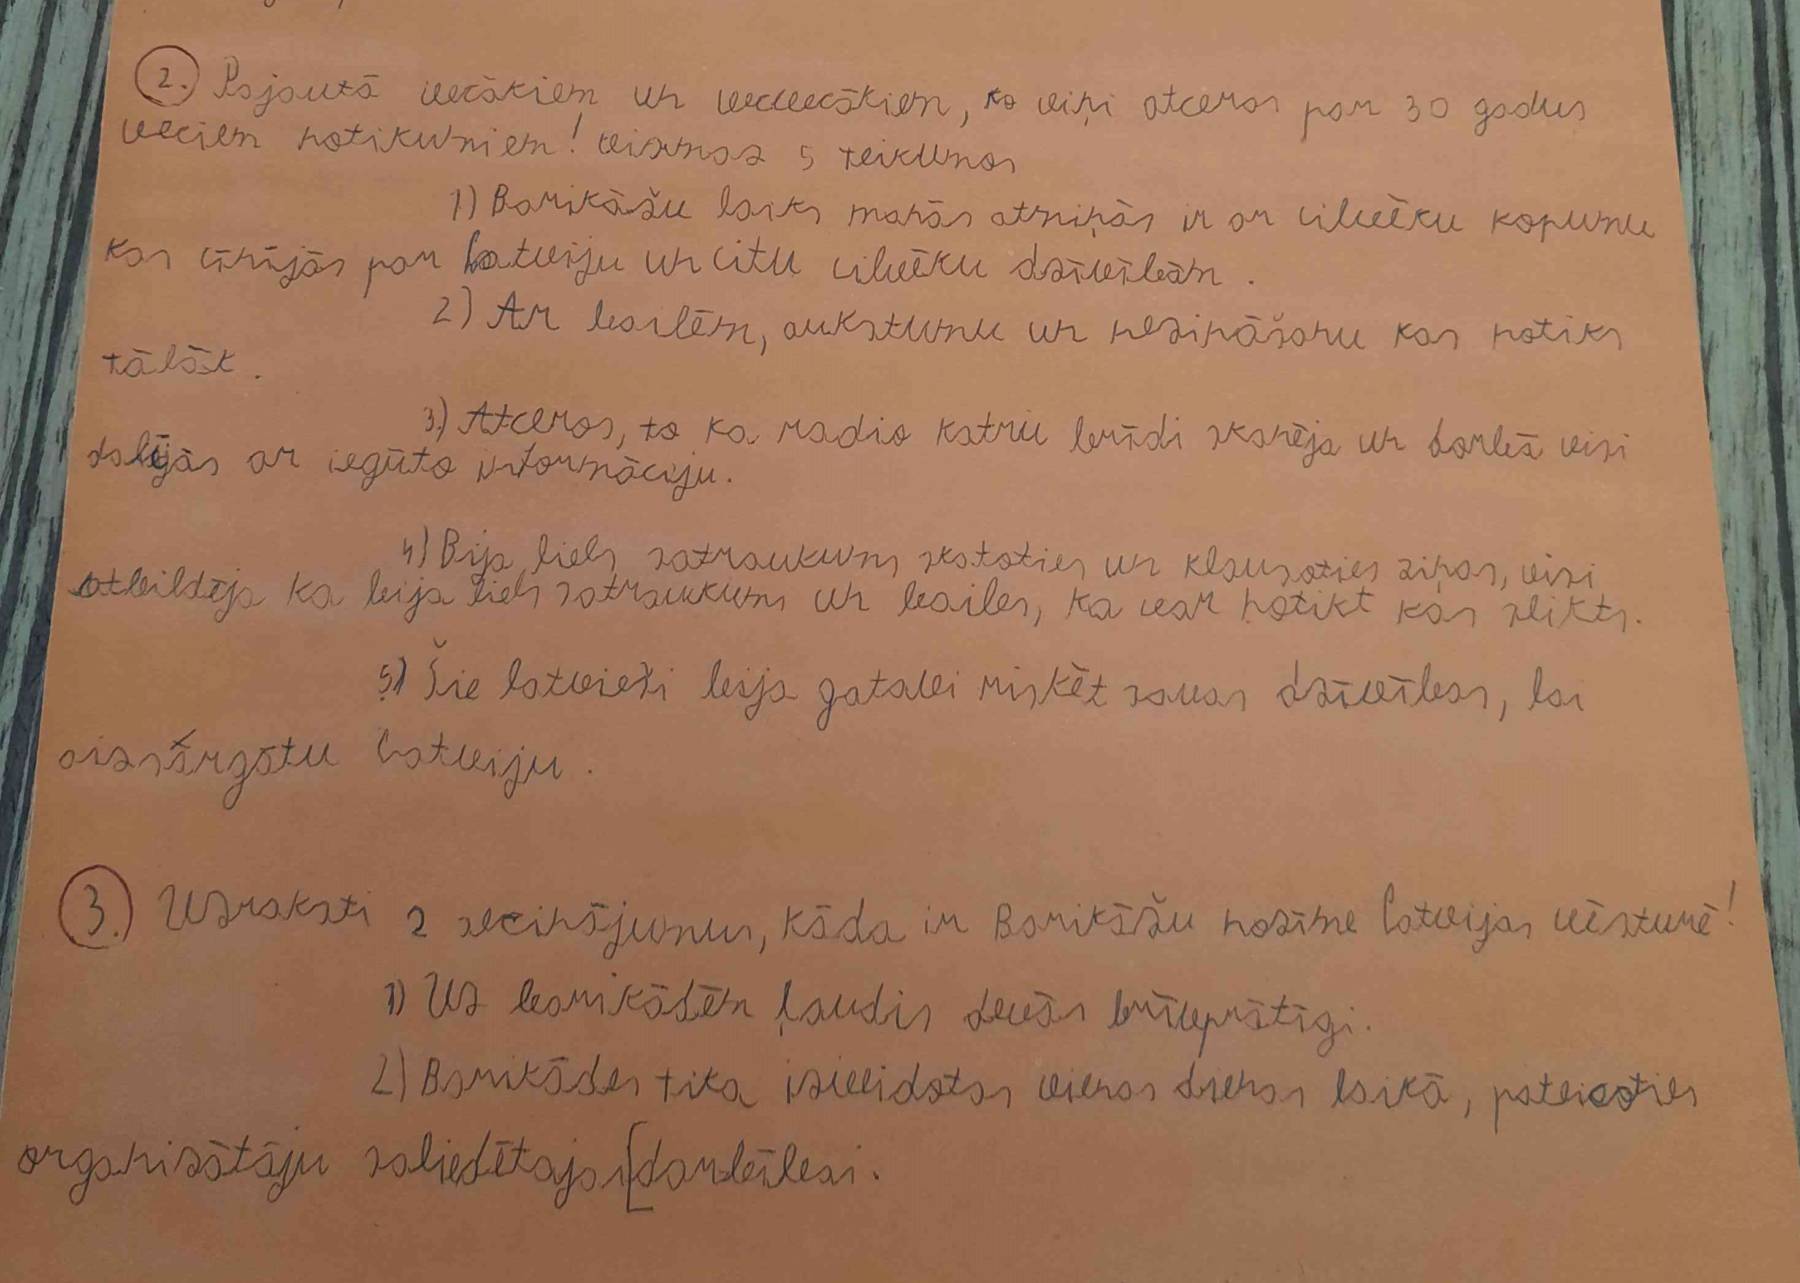 2. Pajautā vecākiem un vecvecākiem, ko viņi atceras par 30 gadus
veciem notikumiem! vismaz 5 teikumos
1) Barikāžu laiks manās atmiņās ir ar cilvēku kopumu
kas cīnījās par Latviju un citu cilvēku dzīvībām.
2) Ar bailēm, aukstumu un nezināšanu kas notiks
tālāk.
3) Atceros, to ka radio katru brīdi skanēja un darbā visi
dalījās ar iegūto informāciju.
4) Bija liels satraukums skatoties un klausoties ziņas, visi
atbildēja ka bija liels satraukums un bailes, ka var notikt kas slikts.
5) Šie latvieši bija gatavi riskēt savas dzīvības, lai
aizsārgātu Latviju.
3. Uzraksti 2 secinājumus, kāda ir Barikāžu nozīme Latvijas vēsturē!
1) Uz barikādēm ļaudis devās brīvprātīgi.
2) Barikādes tika izveidotas vienas dienas laikā, pateicoties
organizātāju saliedētajas[darbībai.